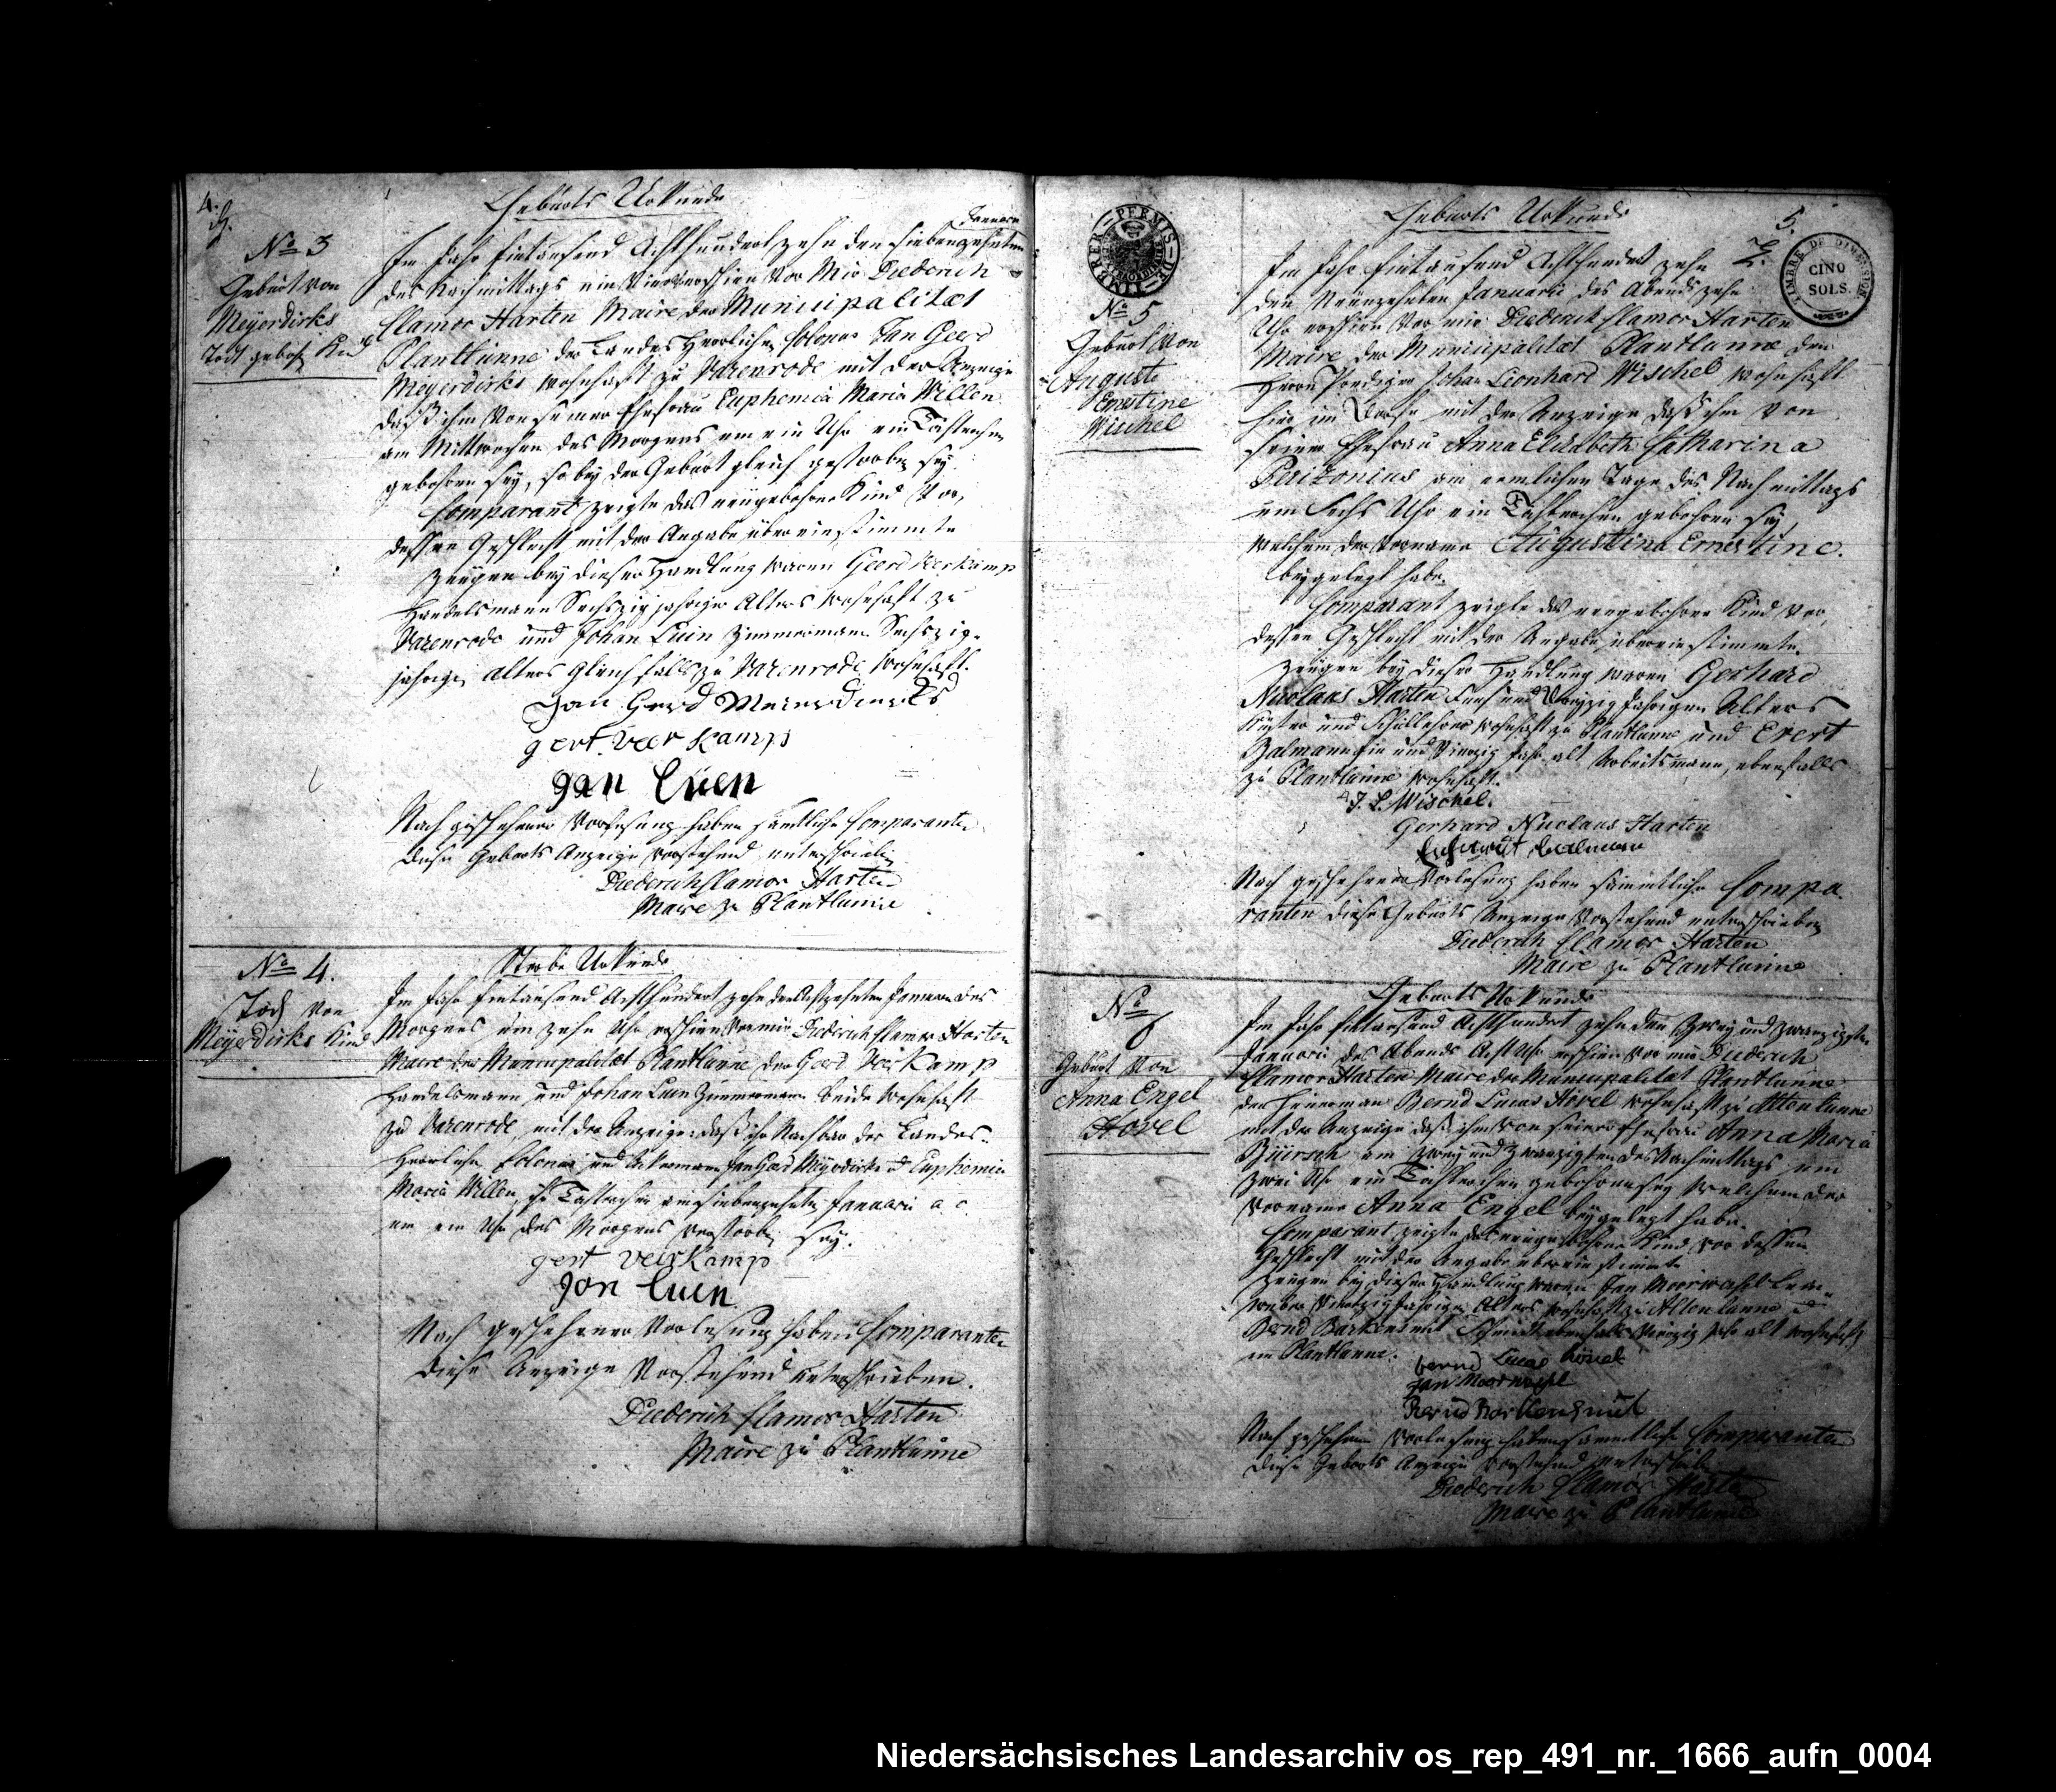 4.
No 3
Geburt von
Meyerdirks
todt gebohr Kind
Geburts Urkunde
Im Jahr Eintausend Achthundert zehn den siebenzehnten Januari
des Nachmittags um Vier erschien vor Mir Diederich
Clamor Harten Maire der Municipalitæt
Plantlünne der Landes Herrlicher Colonus Jan Geerd
Meyerdirks wohnhaft zu Varenrode mit der Anzeige
daß ihm von seiner Ehefrau Euphemia Maria Willen
am Mittwochen des Morgens um ein Uhr ein Töchterchen
gebohren sey, so bey der Geburt gleich gestorben sey.
Comparant zeigte das neugebohrne Kind vor,
dessen Geschlecht mit der Angabe übereinstimmte
Zeugen bey dieser Handlung waren Geerd Veerkamp
Handelsmann Sechszig jähriger Alters wohnhaft zu
Varenrode und Johan Luin Zimmermann Sechszig
jährigen Alters gleichfalls zu Varenrode wohnhaft.
Jan Gerd Meierdierks
gert veer kamp
Jan Luen
Nach geschehener Vorlesung haben sämtliche Comparanten
diese Geburts Anzeige vorstehend unterschrieben
Diederich Clamor Harten
Maire zu Plantlünne
No 4.
Tod von
Meyerdirks Kind
Sterbe Urkunde
Im Jahr Eintausend Achthundert zehn den Achtzehnten Januari des
Morgens um zehn Uhr erschien vor mir Diederich Clamor Harten
Maire der Municipalitæt Plantlünne der Gerd Veerkamp
Handelsmann und Johan Luen Zimmermann beide wohnhaft
zu Varenrode, mit der Anzeige: daß ihr Nachbar der Landes
Herrlicher Colonus und Ackermann Jan Gerd Meyerdirks u Euphemia
Maria Willen, ihr Töchterchen am siebenzehnten Januari a c.
um ein Uhr des Morgens verstorben sey.
gert veerkamp
Jan Luen
Nach geschehener Vorlesung haben Comparanten
diese Anzeige Vorstehend unterschrieben.
Diederich Clamor Harten
Maire zu Plantlünne
TIMBRER PERMIS DE
No 5
Geburt von
Auguste
Ernestine
Wischel
Geburts Urkunde
5.
TIMBRE DE DIMENSION
CINQ
SOLS.
Im Jahr Eintausend Achthundert zehn
den Neunzehnten Januarii des Abends zehn
Uhr erschien vor mir Diederich Clamor Harten
Maire der Municipalitæt Plantlünne den
Herrn Prediger Johan Leonhard Wischel wohnhaft
hier im Dorfe mit der Anzeige daß ihm von
seiner Ehefrau Anna Elisabeth Catharina
Perizonius am nemlichen Tage des Nachmittags
um Sechs Uhr ein Töchterchen gebohren sey,
welchem der Vorname Augustina Ernestine.
beygelegt habe.
Comparant zeigte das neugebohrne Kind vor,
dessen Geschlecht mit der Angabe übereinstimmte,
Zeugen bey dieser Handlung waren Gerhard
Nicolaus Harten Alters
Küster und Schullehrer wohnhaft zu Plantlünne und Evert
und Vierzig Jahr alt Arbeitsmann, ebenfalls
zu Plantlünne wohnhaft.
J. L. Wischel.
Gerhard Nicolaus Harten
Nach geschehener Vorlesung haben sämmtliche Compa
ranten diese Geburts Anzeige Vorstehend unterschrieben
Diederich Clamor Harten
Maire zu Plantlünne
No
6
Geburt von
Anna Engel
Hövel
Geburts Urkunde
Im Jahr Eintausend Achthundert zehn den zwey und zwanzigsten
Januarii des Abends Acht Uhr erschien vor mir Diederich
Clamor Harten Maire der Municipalitæt Plantlünne
der Heuerman Bernd Lucas Hövel wohnhaft zu Altenlünne
mit der Anzeige daß ihm von seiner Ehefrau Anna Maria
am zwey und zwanzigsten des Nachmittags um
zwei Uhr ein Töchterchen gebohren sey welchem der
Vorname Anna Engel beygelegt habe.
Comparant zeigte das neugebohrne Kind vor dessen
Geschlecht mit der Angabe übereinstimmte
Zeugen bey dieser Handlung waren Jan
Alters wohnhaft zu Altenlünne u
Bernd ebenfals Vierzig Jahr alt wohnhaft
im Plantlünne.
bernd Lucas hövel
Nach geschehener Vorlesung haben sämmtliche Comparanten
diese Geburts Anzeige Vorstehend unterschrieben
Diederich Clamor Harten
Maire zu Plantlünne
Niedersächsisches Landesarchiv os_rep_491_nr._1666_aufn_0004